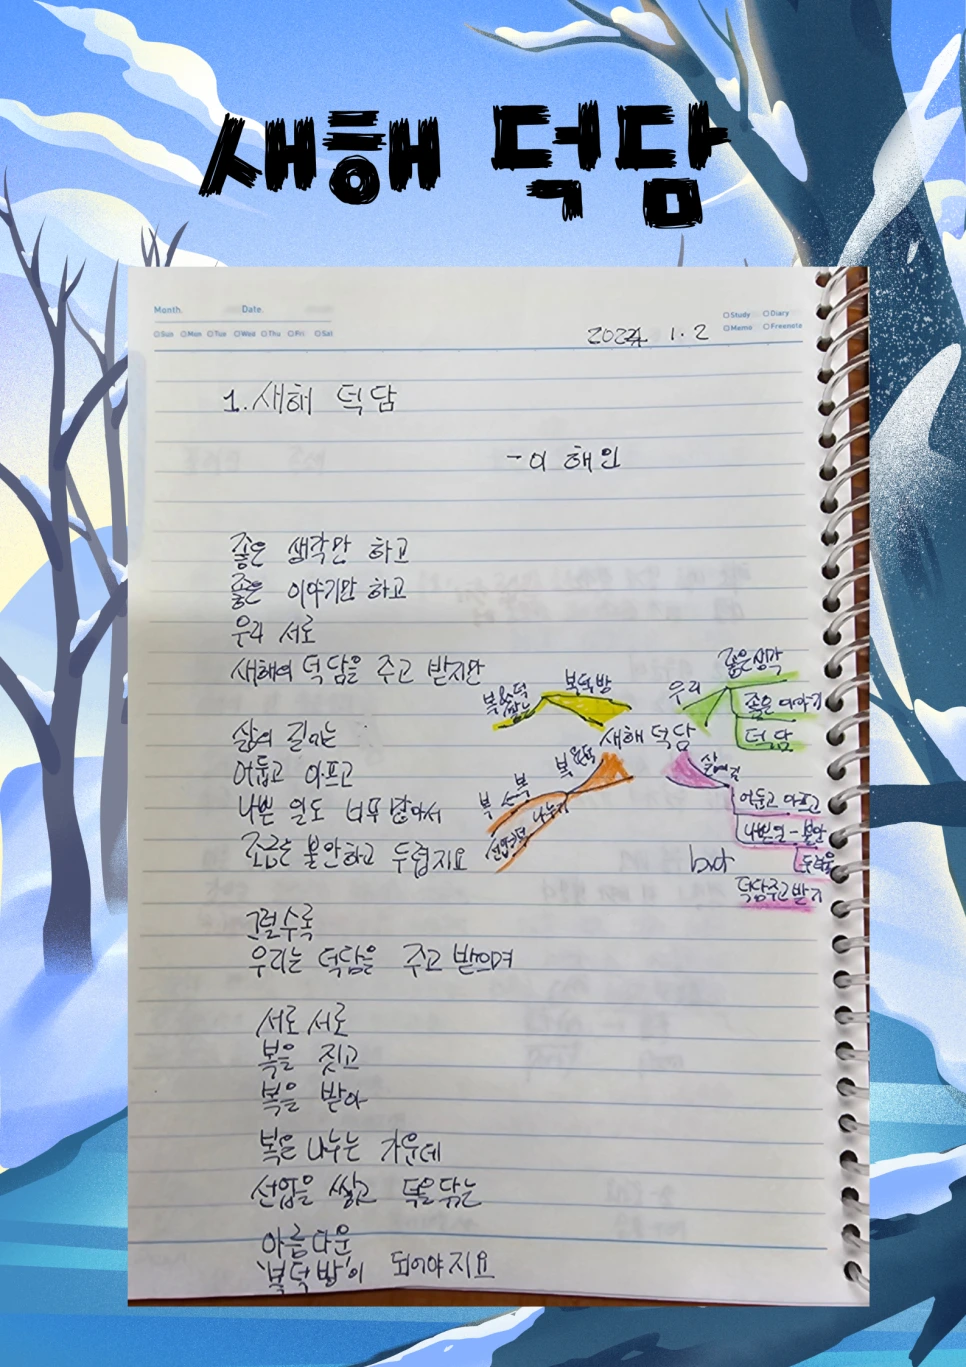 새해 덕담
Month. Date.
Sun Mon Tue Wed Thu Fri Sat
Study Diary
Memo Freenote
2024 1. 2
1. 새해 덕담
- 이 해인
좋은 생각만 하고
좋은 이야기만 하고
우리 서로
새해의 덕담을 주고 받지만
삶의 길에는
어둡고 아프고
나쁜 일도 너무 많아서
조금은 불안하고 두렵지요
그럴수록
우리는 덕담을 주고 받으며
서로서로
복을 짓고
복을 받아
복을 나누는 가운데
선업을 쌓고 덕을 닦는
아름다운
'복덕방'이 되어야지요
복덕방
우리
좋은생각
좋은 이야기
덕담
새해 덕담
삶의 길
어둡고 아프고
나쁜일 - 불안
두려움
but
덕담주고받기
나누기